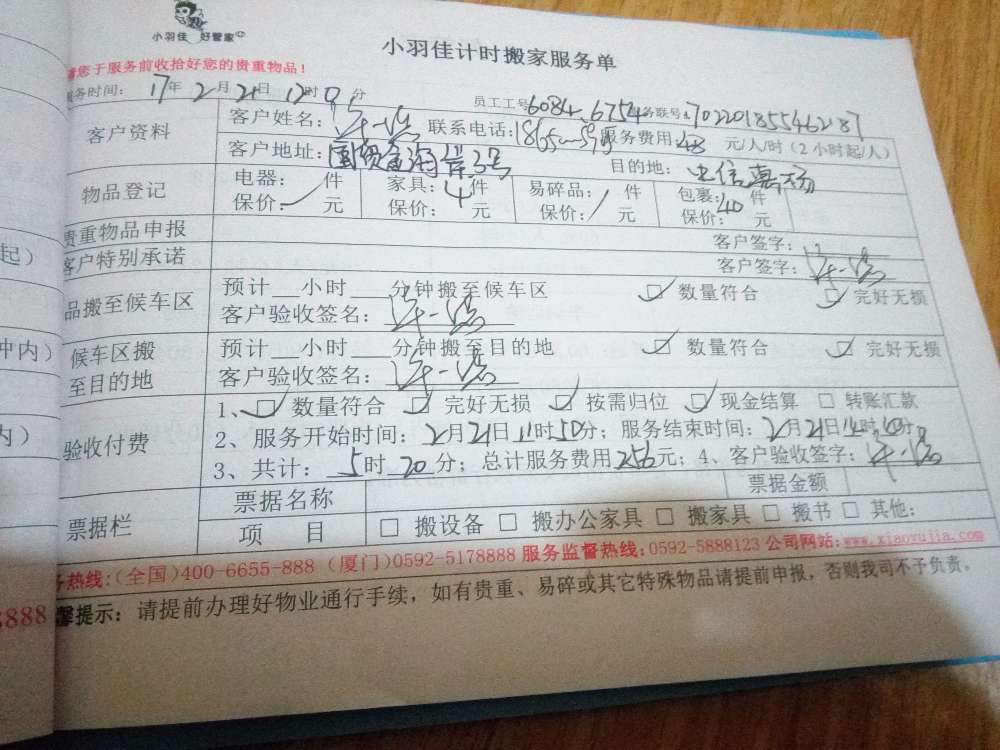 小羽佳 好管家
小羽佳计时搬家服务单
请您于服务前收拾好您的贵重物品！
服务时间： 17年 2月 21日 12时 0分 员工工号6084、6754 务联号:702201855462187
客户资料 客户姓名： 联系电话： 服务费用：48 元/人/时（2小时起/人）
客户地址：国贸金海岸3号 目的地：
物品登记 电器： 件 家具：4件 易碎品： 件 包裹：40 件
保价： 元 保价： 元 保价： 元 保价： 元
贵重物品申报 客户签字：
客户特别承诺 客户签字：
品搬至候车区 预计__小时___分钟搬至候车区 ☑ 数量符合 ☑ 完好无损
客户验收签名：
候车区搬至目的地 预计__小时___分钟搬至目的地 ☑ 数量符合 ☑ 完好无损
客户验收签名：
验收付费 1、☑ 数量符合 ☑ 完好无损 ☑ 按需归位 ☑ 现金结算 □ 转账汇款
2、服务开始时间：2月21日11时50分；服务结束时间：2月21日 时 分
3、共计：5时20分；总计服务费用256元；4、客户验收签字：
票据栏 票据名称 票据金额
项 目 □ 搬设备 □ 搬办公家具 □ 搬家具 □ 搬书 □ 其他：
务热线：(全国)400-6655-888 (厦门)0592-5178888 服务监督热线：0592-5888123 公司网站：www.xiaoyujia.com
馨提示：请提前办理好物业通行手续，如有贵重、易碎或其它特殊物品请提前申报，否则我司不予负责。
起）
钟内）
内）
8888